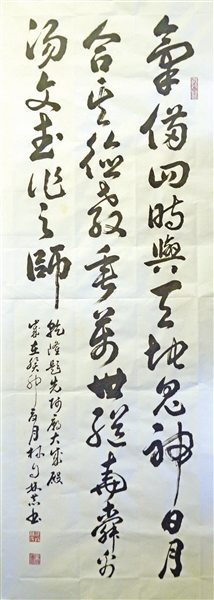 氣備四時與天地鬼神日月
合其德教垂萬世繼堯舜禹
湯文武作之師
乾隆題先師廟大成殿
歲在癸卯夏月林書